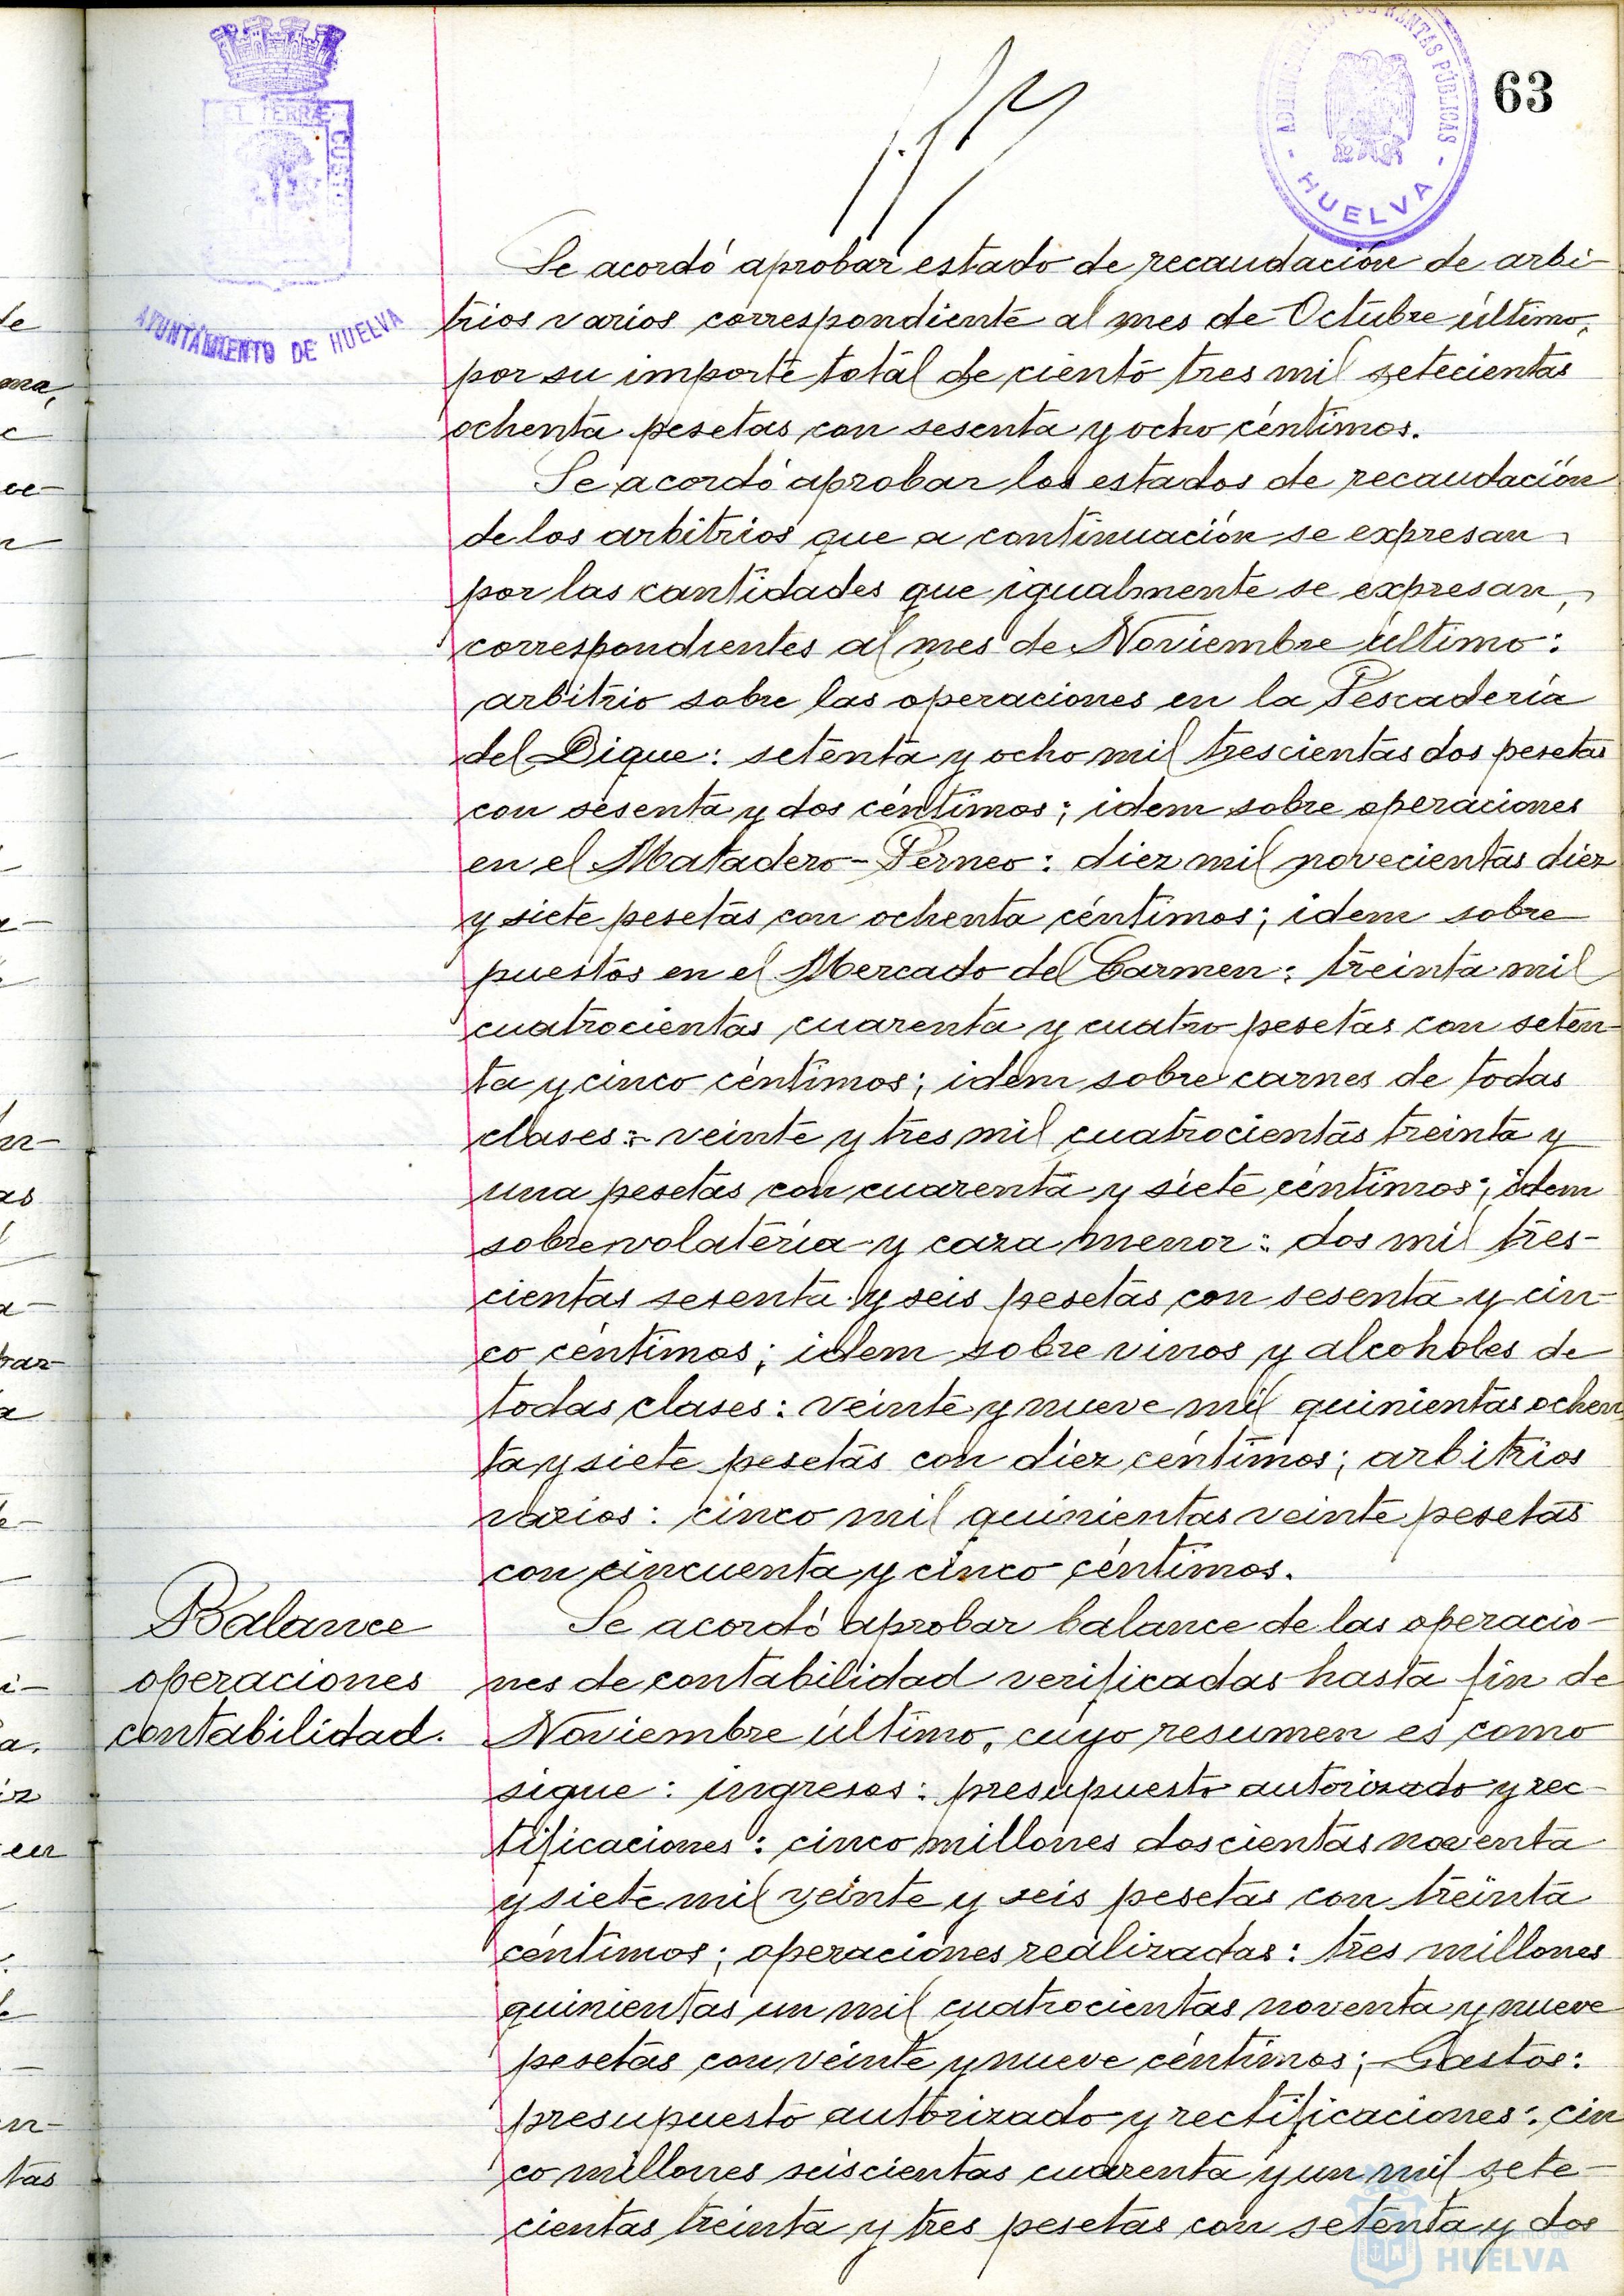 63
ET TERRÆ
CUSTO
AYUNTAMIENTO DE HUELVA
RENTAS PÚBLICAS
- HUELVA -
Se acordó aprobar estado de recaudación de arbi-
trios varios correspondiente al mes de Octubre último,
por su importe total de ciento tres mil setecientas
ochenta pesetas con sesenta y ocho céntimos.
Se acordó aprobar los estados de recaudación
de los arbitrios que a continuación se expresan
por las cantidades que igualmente se expresan,
correspondientes al mes de Noviembre último:
arbitrio sobre las operaciones en la Pescadería
del Dique: setenta y ocho mil trescientas dos pesetas
con sesenta y dos céntimos; idem sobre operaciones
en el Matadero-Perneo: diez mil novecientas diez
y siete pesetas con ochenta céntimos; idem sobre
puestos en el Mercado del Carmen: treinta mil
cuatrocientas cuarenta y cuatro pesetas con seten-
ta y cinco céntimos; idem sobre carnes de todas
clases: veinte y tres mil cuatrocientas treinta y
una pesetas con cuarenta y siete céntimos; idem
sobre volatería y caza menor: dos mil tres-
cientas sesenta y seis pesetas con sesenta y cin-
co céntimos; idem sobre vinos y alcoholes de
todas clases: veinte y nueve mil quinientas ochen
ta y siete pesetas con diez céntimos; arbitrios
varios: cinco mil quinientas veinte pesetas
con cincuenta y cinco céntimos.
Balance
operaciones
contabilidad.
Se acordó aprobar balance de las operacio-
nes de contabilidad verificadas hasta fin de
Noviembre último, cuyo resumen es como
sigue: ingresos: presupuesto autorizado y rec-
tificaciones: cinco millones doscientas noventa
y siete mil veinte y seis pesetas con treinta
céntimos; operaciones realizadas: tres millones
quinientas un mil cuatrocientas noventa y nueve
pesetas con veinte y nueve céntimos; Gastos:
presupuesto autorizado y rectificaciones: cin
co millones seiscientas cuarenta y un mil sete-
cientas treinta y tres pesetas con setenta y dos
HUELVA